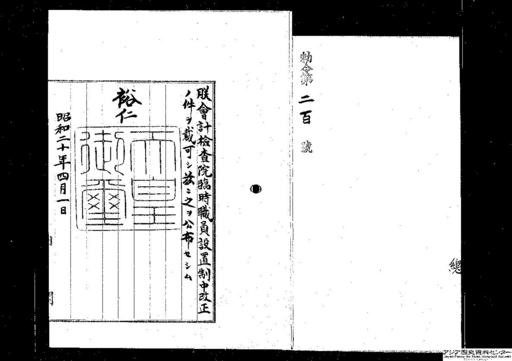 勅令第二百號
朕會計檢査院臨時職員設置制中改正
ノ件ヲ裁可シ茲ニ之ヲ公布セシム
裕仁
天皇御璽
昭和二十年四月一日
內閣
總
アジア歴史資料センター
Japan Center for Asian Historical Records